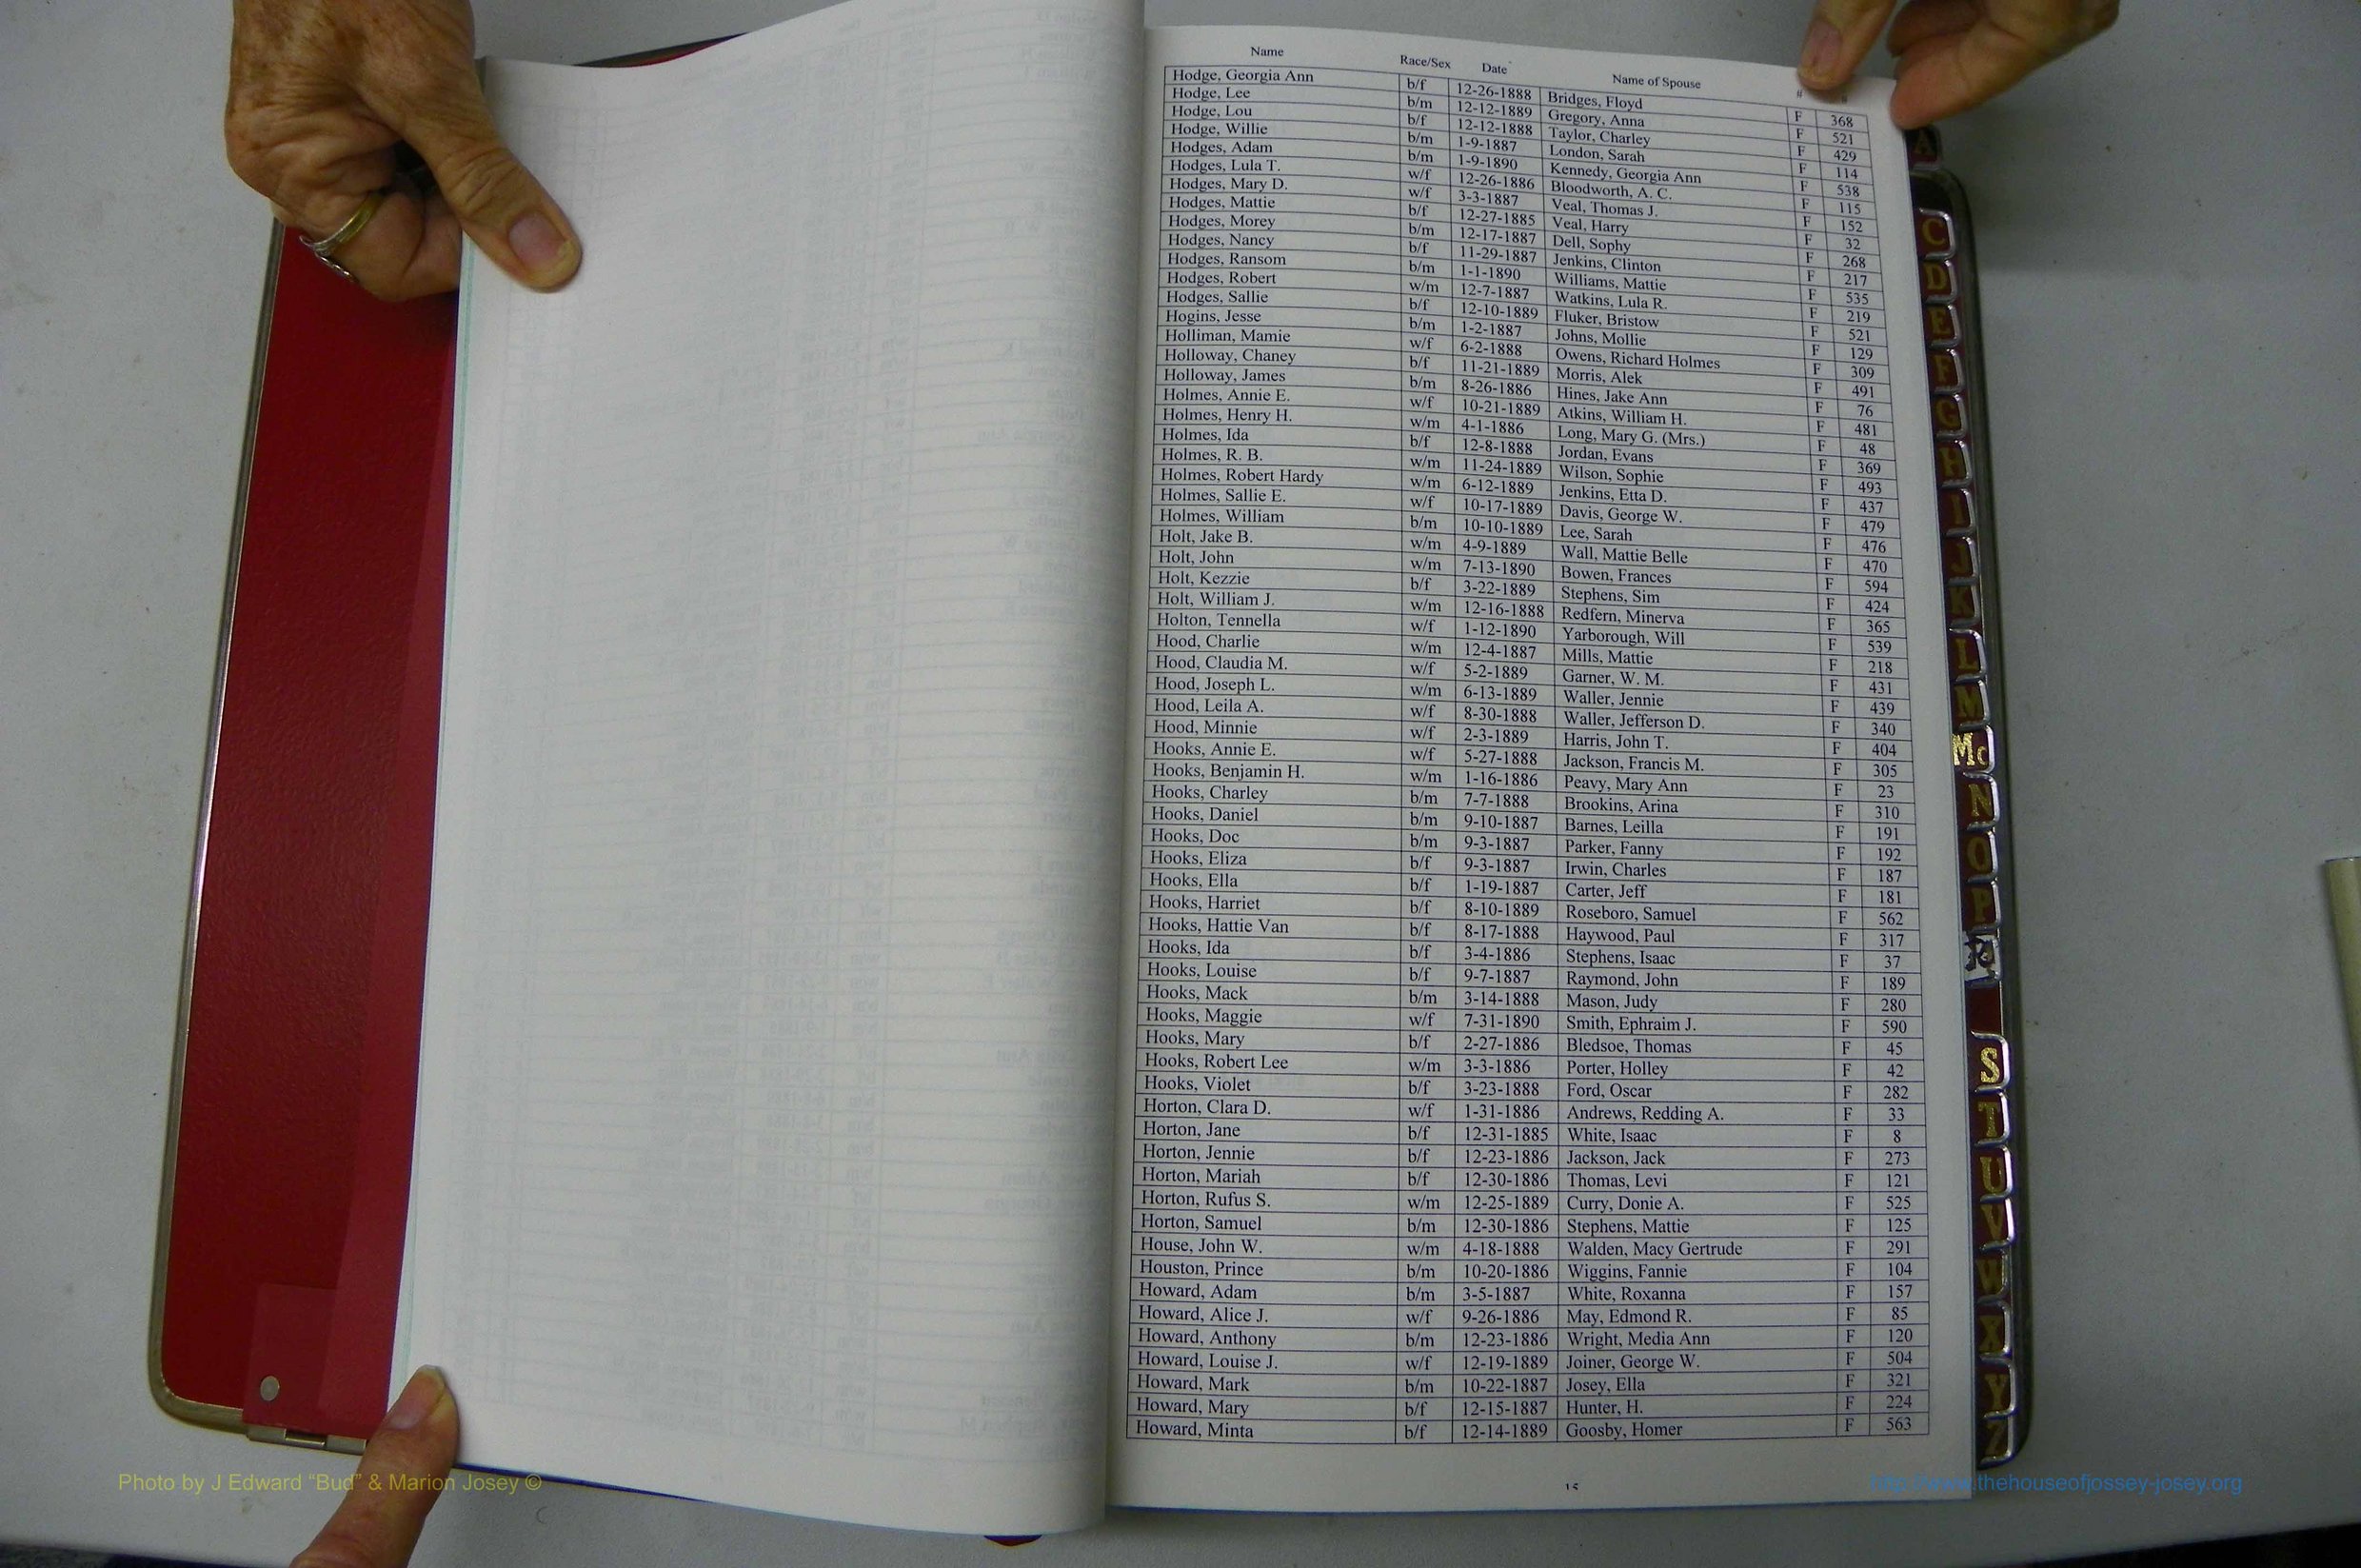 Name Race/Sex Date Name of Spouse # #
Hodge, Georgia Ann b/f 12-26-1888 Bridges, Floyd F 368
Hodge, Lee b/m 12-12-1889 Gregory, Anna F 521
Hodge, Lou b/f 12-12-1888 Taylor, Charley F 429
Hodge, Willie b/m 1-9-1887 London, Sarah F 114
Hodges, Adam b/m 1-9-1890 Kennedy, Georgia Ann F 538
Hodges, Lula T. w/f 12-26-1886 Bloodworth, A. C. F 115
Hodges, Mary D. w/f 3-3-1887 Veal, Thomas J. F 152
Hodges, Mattie b/f 12-27-1885 Veal, Harry F 32
Hodges, Morey b/m 12-17-1887 Dell, Sophy F 268
Hodges, Nancy b/f 11-29-1887 Jenkins, Clinton F 217
Hodges, Ransom b/m 1-1-1890 Williams, Mattie F 535
Hodges, Robert w/m 12-7-1887 Watkins, Lula R. F 219
Hodges, Sallie b/f 12-10-1889 Fluker, Bristow F 521
Hogins, Jesse b/m 1-2-1887 Johns, Mollie F 129
Holliman, Mamie w/f 6-2-1888 Owens, Richard Holmes F 309
Holloway, Chaney b/f 11-21-1889 Morris, Alek F 491
Holloway, James b/m 8-26-1886 Hines, Jake Ann F 76
Holmes, Annie E. w/f 10-21-1889 Atkins, William H. F 481
Holmes, Henry H. w/m 4-1-1886 Long, Mary G. (Mrs.) F 48
Holmes, Ida b/f 12-8-1888 Jordan, Evans F 369
Holmes, R. B. w/m 11-24-1889 Wilson, Sophie F 493
Holmes, Robert Hardy w/m 6-12-1889 Jenkins, Etta D. F 437
Holmes, Sallie E. w/f 10-17-1889 Davis, George W. F 479
Holmes, William b/m 10-10-1889 Lee, Sarah F 476
Holt, Jake B. w/m 4-9-1889 Wall, Mattie Belle F 470
Holt, John w/m 7-13-1890 Bowen, Frances F 594
Holt, Kezzie b/f 3-22-1889 Stephens, Sim F 424
Holt, William J. w/m 12-16-1888 Redfern, Minerva F 365
Holton, Tennella w/f 1-12-1890 Yarborough, Will F 539
Hood, Charlie w/m 12-4-1887 Mills, Mattie F 218
Hood, Claudia M. w/f 5-2-1889 Garner, W. M. F 431
Hood, Joseph L. w/m 6-13-1889 Waller, Jennie F 439
Hood, Leila A. w/f 8-30-1888 Waller, Jefferson D. F 340
Hood, Minnie w/f 2-3-1889 Harris, John T. F 404
Hooks, Annie E. w/f 5-27-1888 Jackson, Francis M. F 305
Hooks, Benjamin H. w/m 1-16-1886 Peavy, Mary Ann F 23
Hooks, Charley b/m 7-7-1888 Brookins, Arina F 310
Hooks, Daniel b/m 9-10-1887 Barnes, Leilla F 191
Hooks, Doc b/m 9-3-1887 Parker, Fanny F 192
Hooks, Eliza b/f 9-3-1887 Irwin, Charles F 187
Hooks, Ella b/f 1-19-1887 Carter, Jeff F 181
Hooks, Harriet b/f 8-10-1889 Roseboro, Samuel F 562
Hooks, Hattie Van b/f 8-17-1888 Haywood, Paul F 317
Hooks, Ida b/f 3-4-1886 Stephens, Isaac F 37
Hooks, Louise b/f 9-7-1887 Raymond, John F 189
Hooks, Mack b/m 3-14-1888 Mason, Judy F 280
Hooks, Maggie w/f 7-31-1890 Smith, Ephraim J. F 590
Hooks, Mary b/f 2-27-1886 Bledsoe, Thomas F 45
Hooks, Robert Lee w/m 3-3-1886 Porter, Holley F 42
Hooks, Violet b/f 3-23-1888 Ford, Oscar F 282
Horton, Clara D. w/f 1-31-1886 Andrews, Redding A. F 33
Horton, Jane b/f 12-31-1885 White, Isaac F 8
Horton, Jennie b/f 12-23-1886 Jackson, Jack F 273
Horton, Mariah b/f 12-30-1886 Thomas, Levi F 121
Horton, Rufus S. w/m 12-25-1889 Curry, Donie A. F 525
Horton, Samuel b/m 12-30-1886 Stephens, Mattie F 125
House, John W. w/m 4-18-1888 Walden, Macy Gertrude F 291
Houston, Prince b/m 10-20-1886 Wiggins, Fannie F 104
Howard, Adam b/m 3-5-1887 White, Roxanna F 157
Howard, Alice J. w/f 9-26-1886 May, Edmond R. F 85
Howard, Anthony b/m 12-23-1886 Wright, Media Ann F 120
Howard, Louise J. w/f 12-19-1889 Joiner, George W. F 504
Howard, Mark b/m 10-22-1887 Josey, Ella F 321
Howard, Mary b/f 12-15-1887 Hunter, H. F 224
Howard, Minta b/f 12-14-1889 Goosby, Homer F 563
15
A
C
D
E
F
G
H
I
J
K
L
M
Mc
N
O
P
R
S
T
U
V
W
X
Y
Z
Photo by J Edward “Bud” & Marion Josey ©
http://www.thehouseofjossey-josey.org